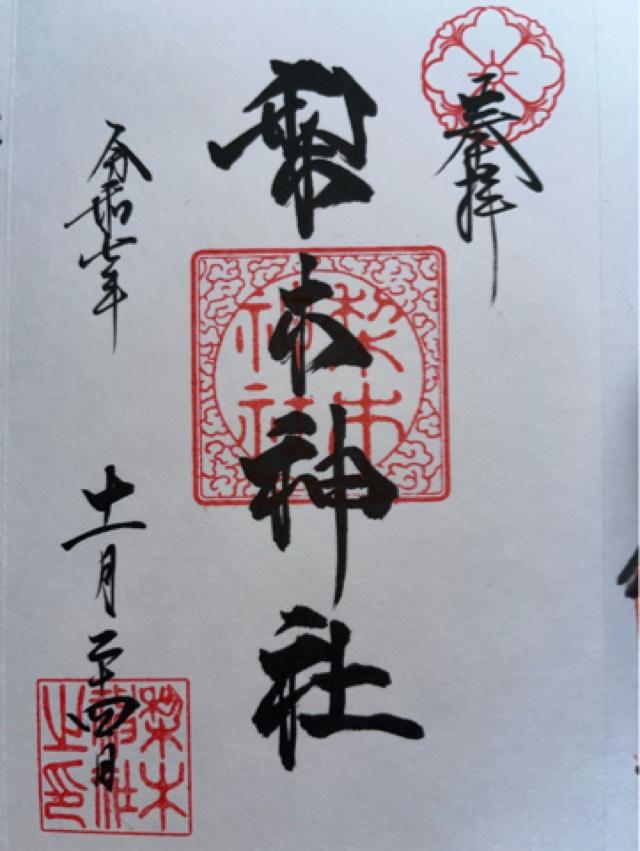 奉拝
梨木神社
梨木神社
令和七年
十一月二十四日
梨木
神社
之印